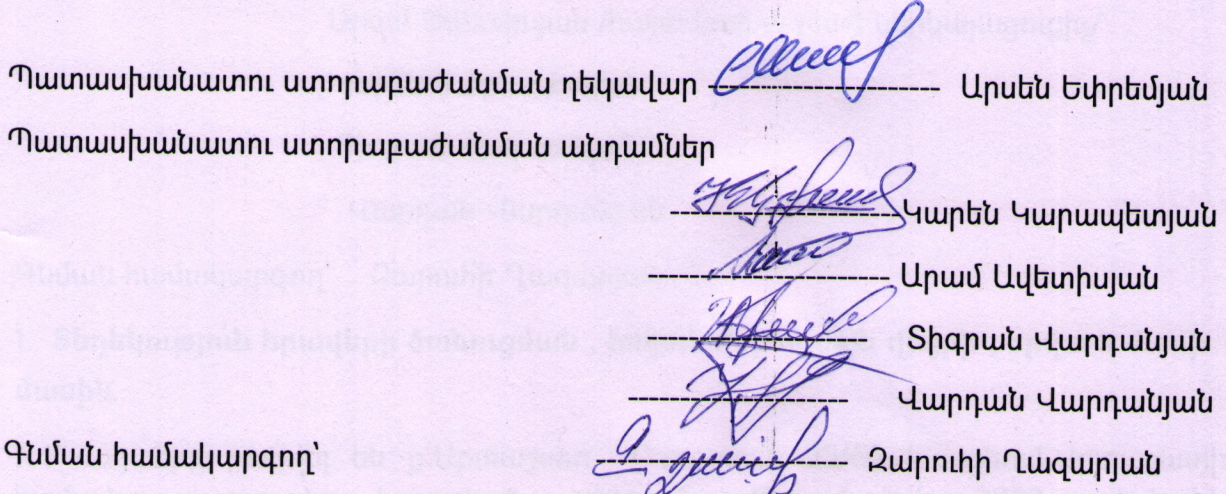 Պատասխանատու ստորաբաժանման ղեկավար ------------------------- Արսեն Եփրեմյան
Պատասխանատու ստորաբաժանման անդամներ
-------------------------Կարեն Կարապետյան
------------------------- Արամ Ավետիսյան
------------------------- Տիգրան Վարդանյան
------------------------- Վարդան Վարդանյան
Գնման համակարգող՝ ------------------------- Զարուհի Ղազարյան